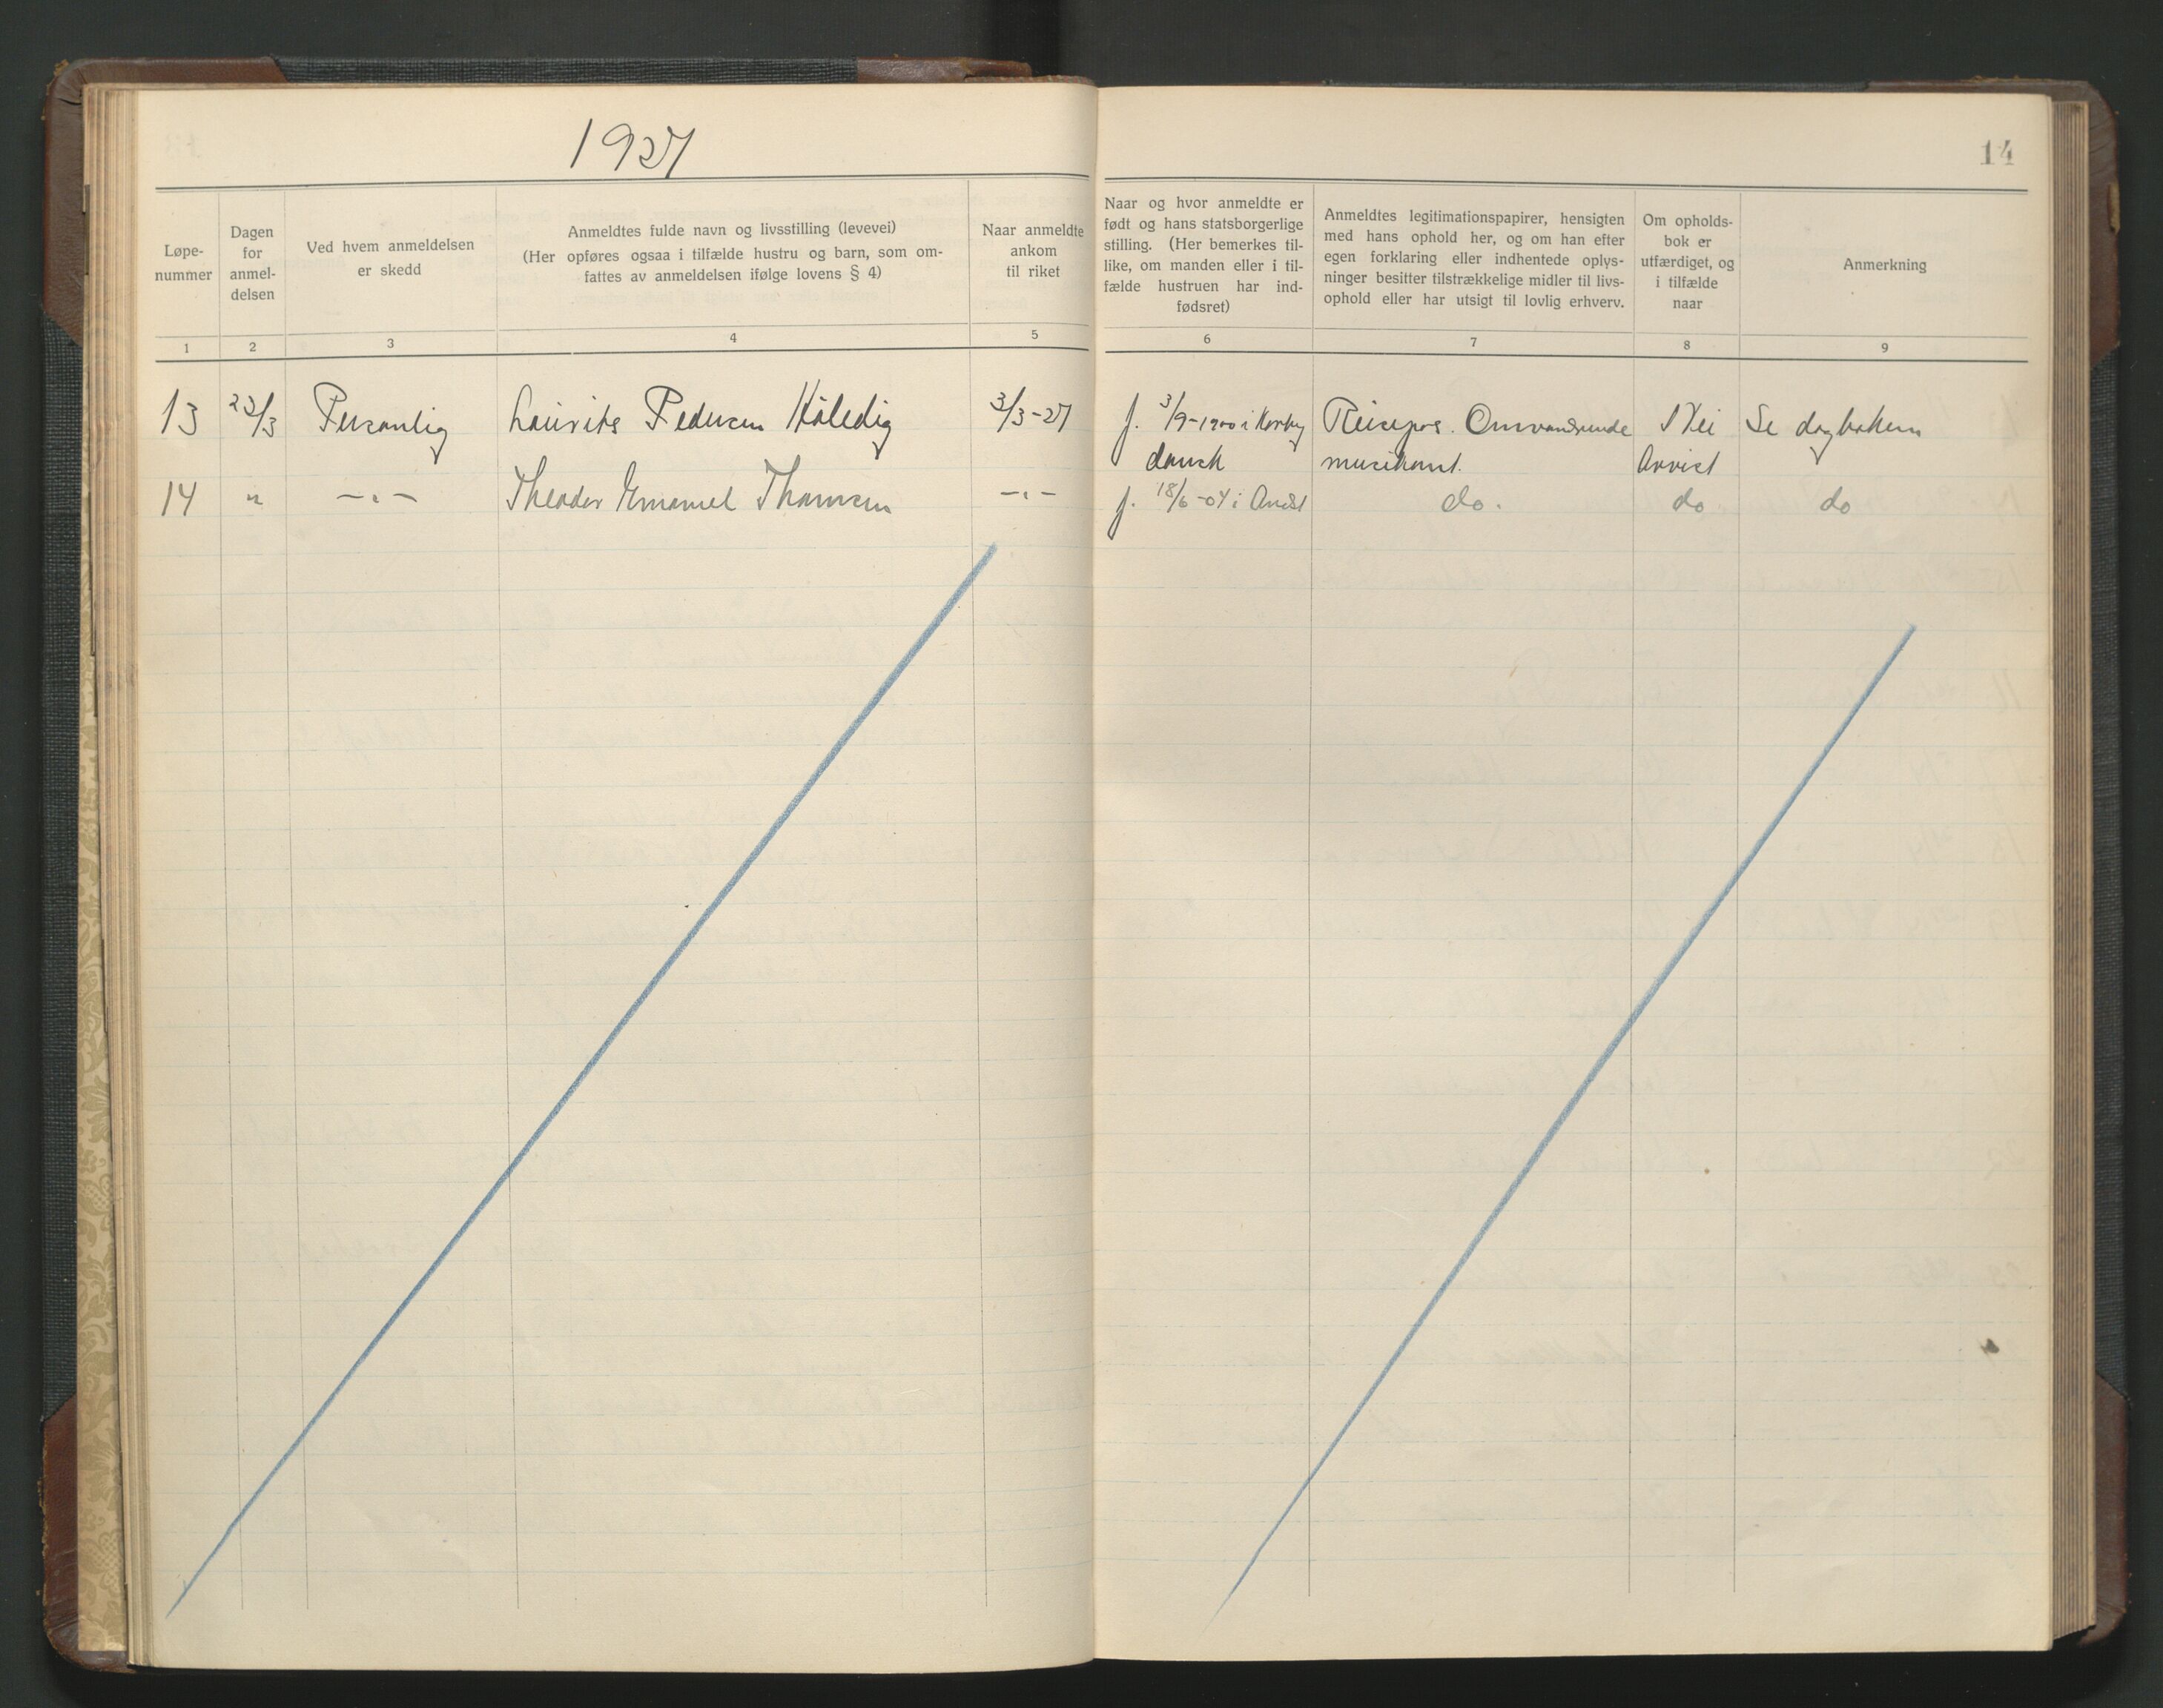 1927
14
Løpe-
nummer
Dagen
for
anmel-
delsen
Ved hvem anmeldelsen
er skedd
Anmeldtes fulde navn og livsstilling (levevei)
(Her opføres ogsaa i tilfælde hustru og barn, som om-
fattes av anmeldelsen ifølge lovens § 4)
Naar anmeldte
ankom
til riket
Naar og hvor anmeldte er
født og hans statsborgerlige
stilling. (Her bemerkes til-
like, om manden eller i til-
fælde hustruen har ind-
fødsret)
Anmeldtes legitimationspapirer, hensigten
med hans ophold her, og om han efter
egen forklaring eller indhentede oplys-
ninger besitter tilstrækkelige midler til livs-
ophold eller har utsigt til lovlig erhverv.
Om opholds-
bok er
utfærdiget, og
i tilfælde
naar
Anmerkning
1 2 3 4 5 6 7 8 9
13 23/3 Personlig Laurits Pedersen 3/3-27 f. 3/9-1900 i dansk Reisepas. Omvandrende musikant. Nei Avvist Se dagboken
14 " -"- Theodor Emanuel Thomsen -"- f. 18/6-04 i do. do do